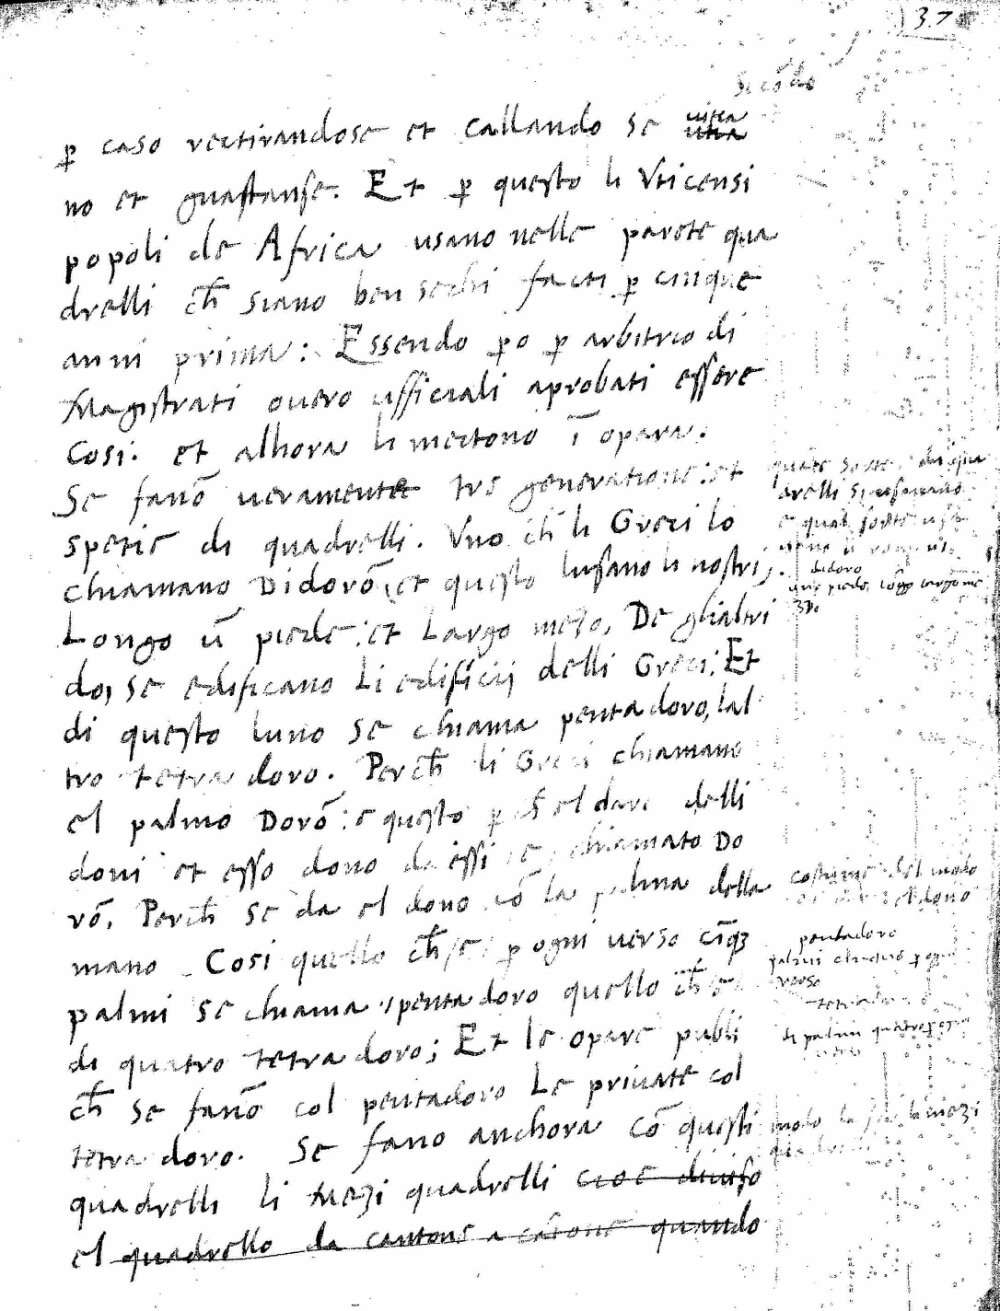 37
Secōdo
ꝑ caso rectirandose et callando se uitia
no et guastanse. Et ꝑ questo li Vticensi
popoli de Africa usano nelle parete qua
drelli ch̄ siano ben sechi facti ꝑ cinque
anni prima: Essendo ꝑo ꝑ arbitrio di
Magistrati ouero ufficiali aprobati essere
Cosi: et alhora li mectono ī opara.
Se fanō ueramente tre generatione: et
spetie di quadrelli. Vno ch̄ li Greci lo
chiamano Didorō, et questo lusano li nostri;
Longo ū piede: et Largo mezo, De glialtri
do, se edificano Li edificij delli Greci: Et
di questo luno se chiama penta doro, lal
tro tetra doro. Perch̄ li Greci chiamano
el palmo Dorō: e questo ꝑ ch̄ el dare delli
doni et esso dono da essi e chiamato Do
rō. Perch̄ se da el dono cō la palma della
mano. Cosi quello ch̄ e ꝑ ogni uerso cīqȝ
palmi se chiama penta doro quello ch̄ e
di quatro tetra doro; Et le opare publi
ch̄ se fanō col pentadoro Le priuate col
tetra doro. Se fano anchora cō questi
quadrelli li Mezi quadrelli cioe diuiso
el quadrello da cantone a cātone quando
quadrelli
didoro
uno piede
costume del modo
el dono
pentadoro
palmi cinque ꝑ ogni
verso
di palmi quatro ꝑ ogni
modo mezi